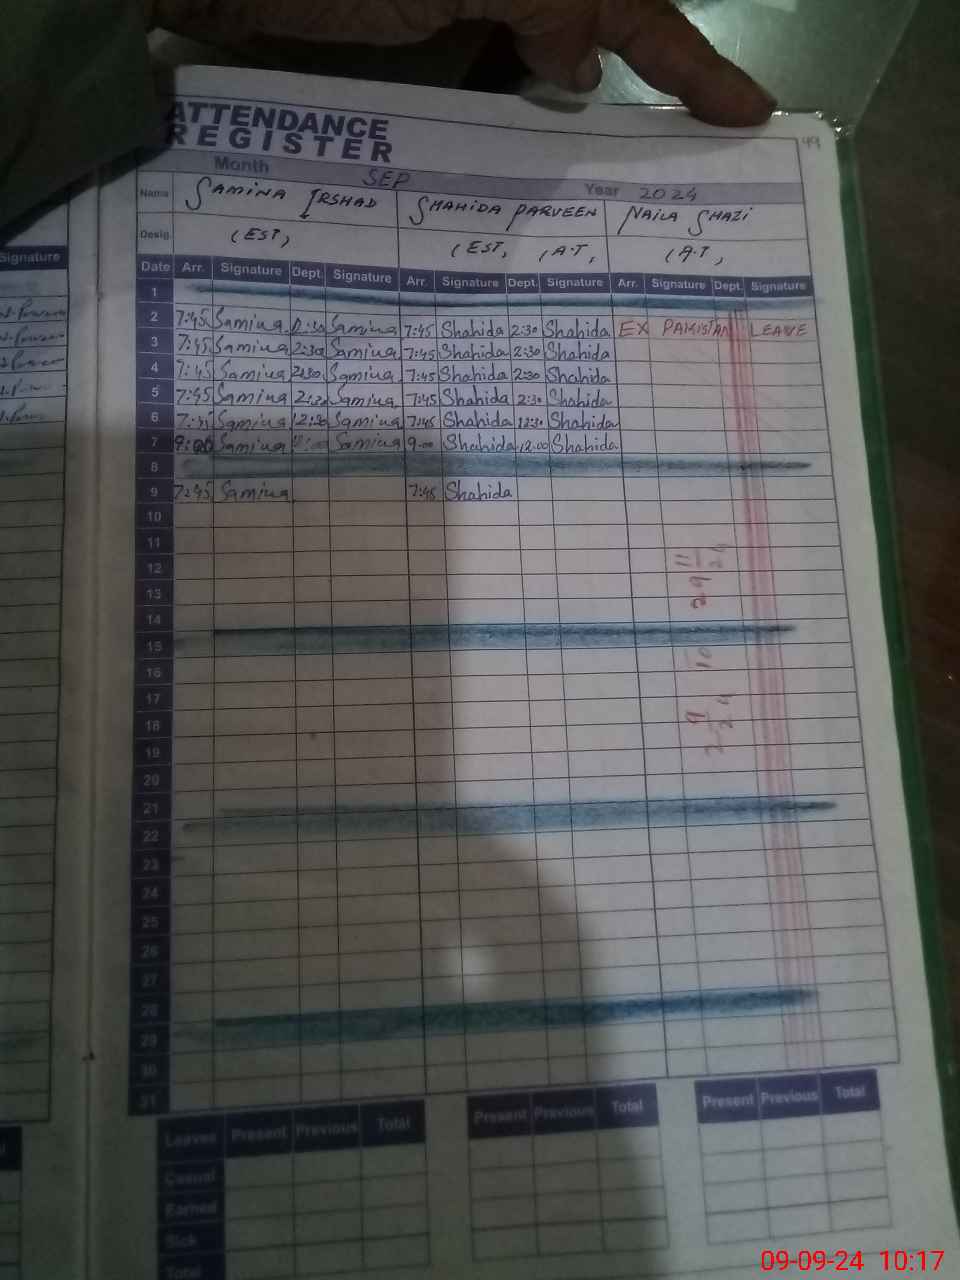 ATTENDANCE
REGISTER
49
Month SEP Year 2024
Name SAMINA IRSHAD SHAHIDA PARVEEN NAILA GHAZI
Desig. (EST, (EST, (A.T, (A.T,
Signature
Date Arr. Signature Dept. Signature Arr. Signature Dept. Signature Arr. Signature Dept. Signature
1
2 7:45 Samina 2:30 Samina 7:45 Shahida 2:30 Shahida EX PAKISTAN LEAVE
3 7:45 Samina 2:30 Samina 7:45 Shahida 2:30 Shahida
4 7:45 Samina 2:30 Samina 7:45 Shahida 2:30 Shahida
5 7:45 Samina 2:30 Samina 7:45 Shahida 2:30 Shahida
6 7:45 Samina 12:30 Samina 7:45 Shahida 12:30 Shahida
7 9:00 Samina Samina 9.00 Shahida 12.00 Shahida
8
9 7:45 Samina 7:45 Shahida
10
11
12
13
14
15
16
17
18
19
20
21
22
23
24
25
26
27
28
29
30
31
Leaves Present Previous Total Present Previous Total Present Previous Total
Casual
Earned
Sick
Total
09-09-24 10:17